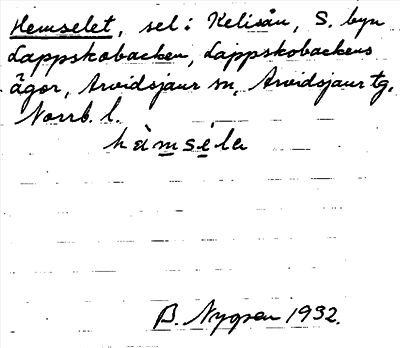 Hemselet, sel i Kelisån, S. byn
Lappskobacken, Lappskobackens
ägor, Arvidsjaur sn, Arvidsjaur tg,
Norrb. l.
hà̀msèla
B. Nygren 1932.